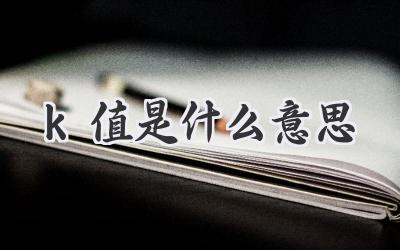 k值是什么意思